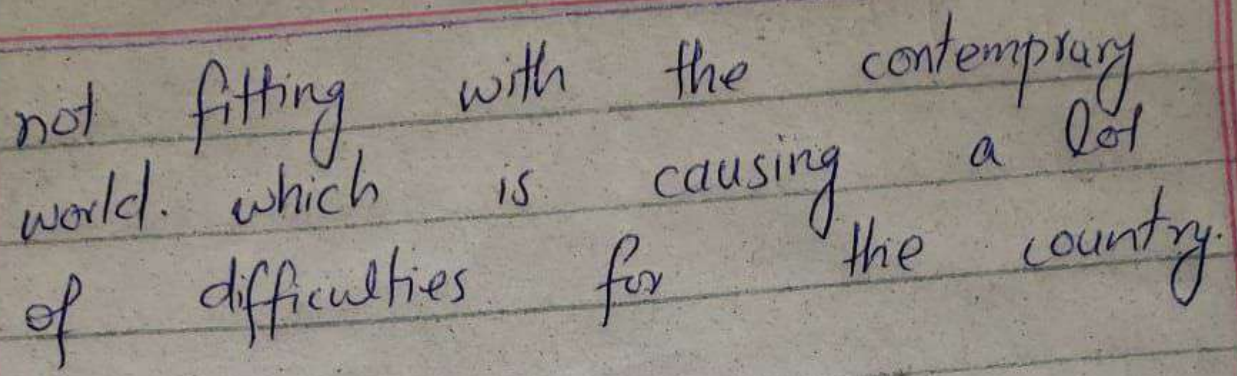 not fitting with the contemprary
world. which is causing a lot
of difficulties for the country.